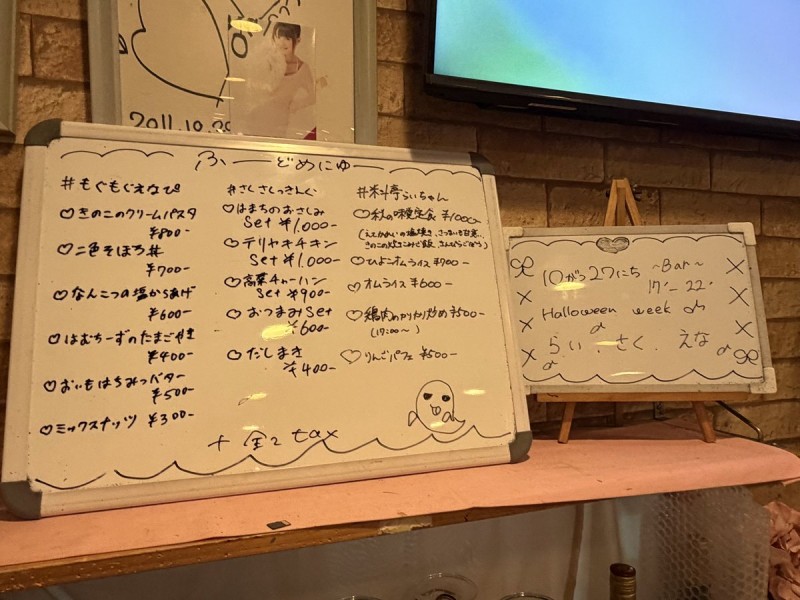 2011.10.29
ふーどめにゅー
#もぐもぐえなぴ
♡きのこのクリームパスタ
¥800-
♡二色そぼろ丼
¥700-
♡なんこつの塩からあげ
¥600-
♡はむちーずのたまごやき
¥400-
♡おいもはちみつバター
¥500-
♡ミックスナッツ ¥300-
#さくさくっきんぐ
♡はまちのおさしみ
Set ¥1,000-
♡テリヤキチキン
Set ¥1,000-
♡高菜チャーハン
Set ¥900-
♡おつまみSet
¥600-
♡だしまき
¥400-
#料亭らいちゃん
♡秋の味覚定食 ¥1000-
きのこの炊きこみご飯、
♡ひよこオムライス ¥700-
♡オムライス ¥600-
♡鶏肉のかりかり炒め ¥500-
(19:00〜)
♡りんごパフェ ¥500-
+ 全て tax
10がつ27にち 〜Bar〜
17'-22'
Halloween week ♪
らい、さく、えな